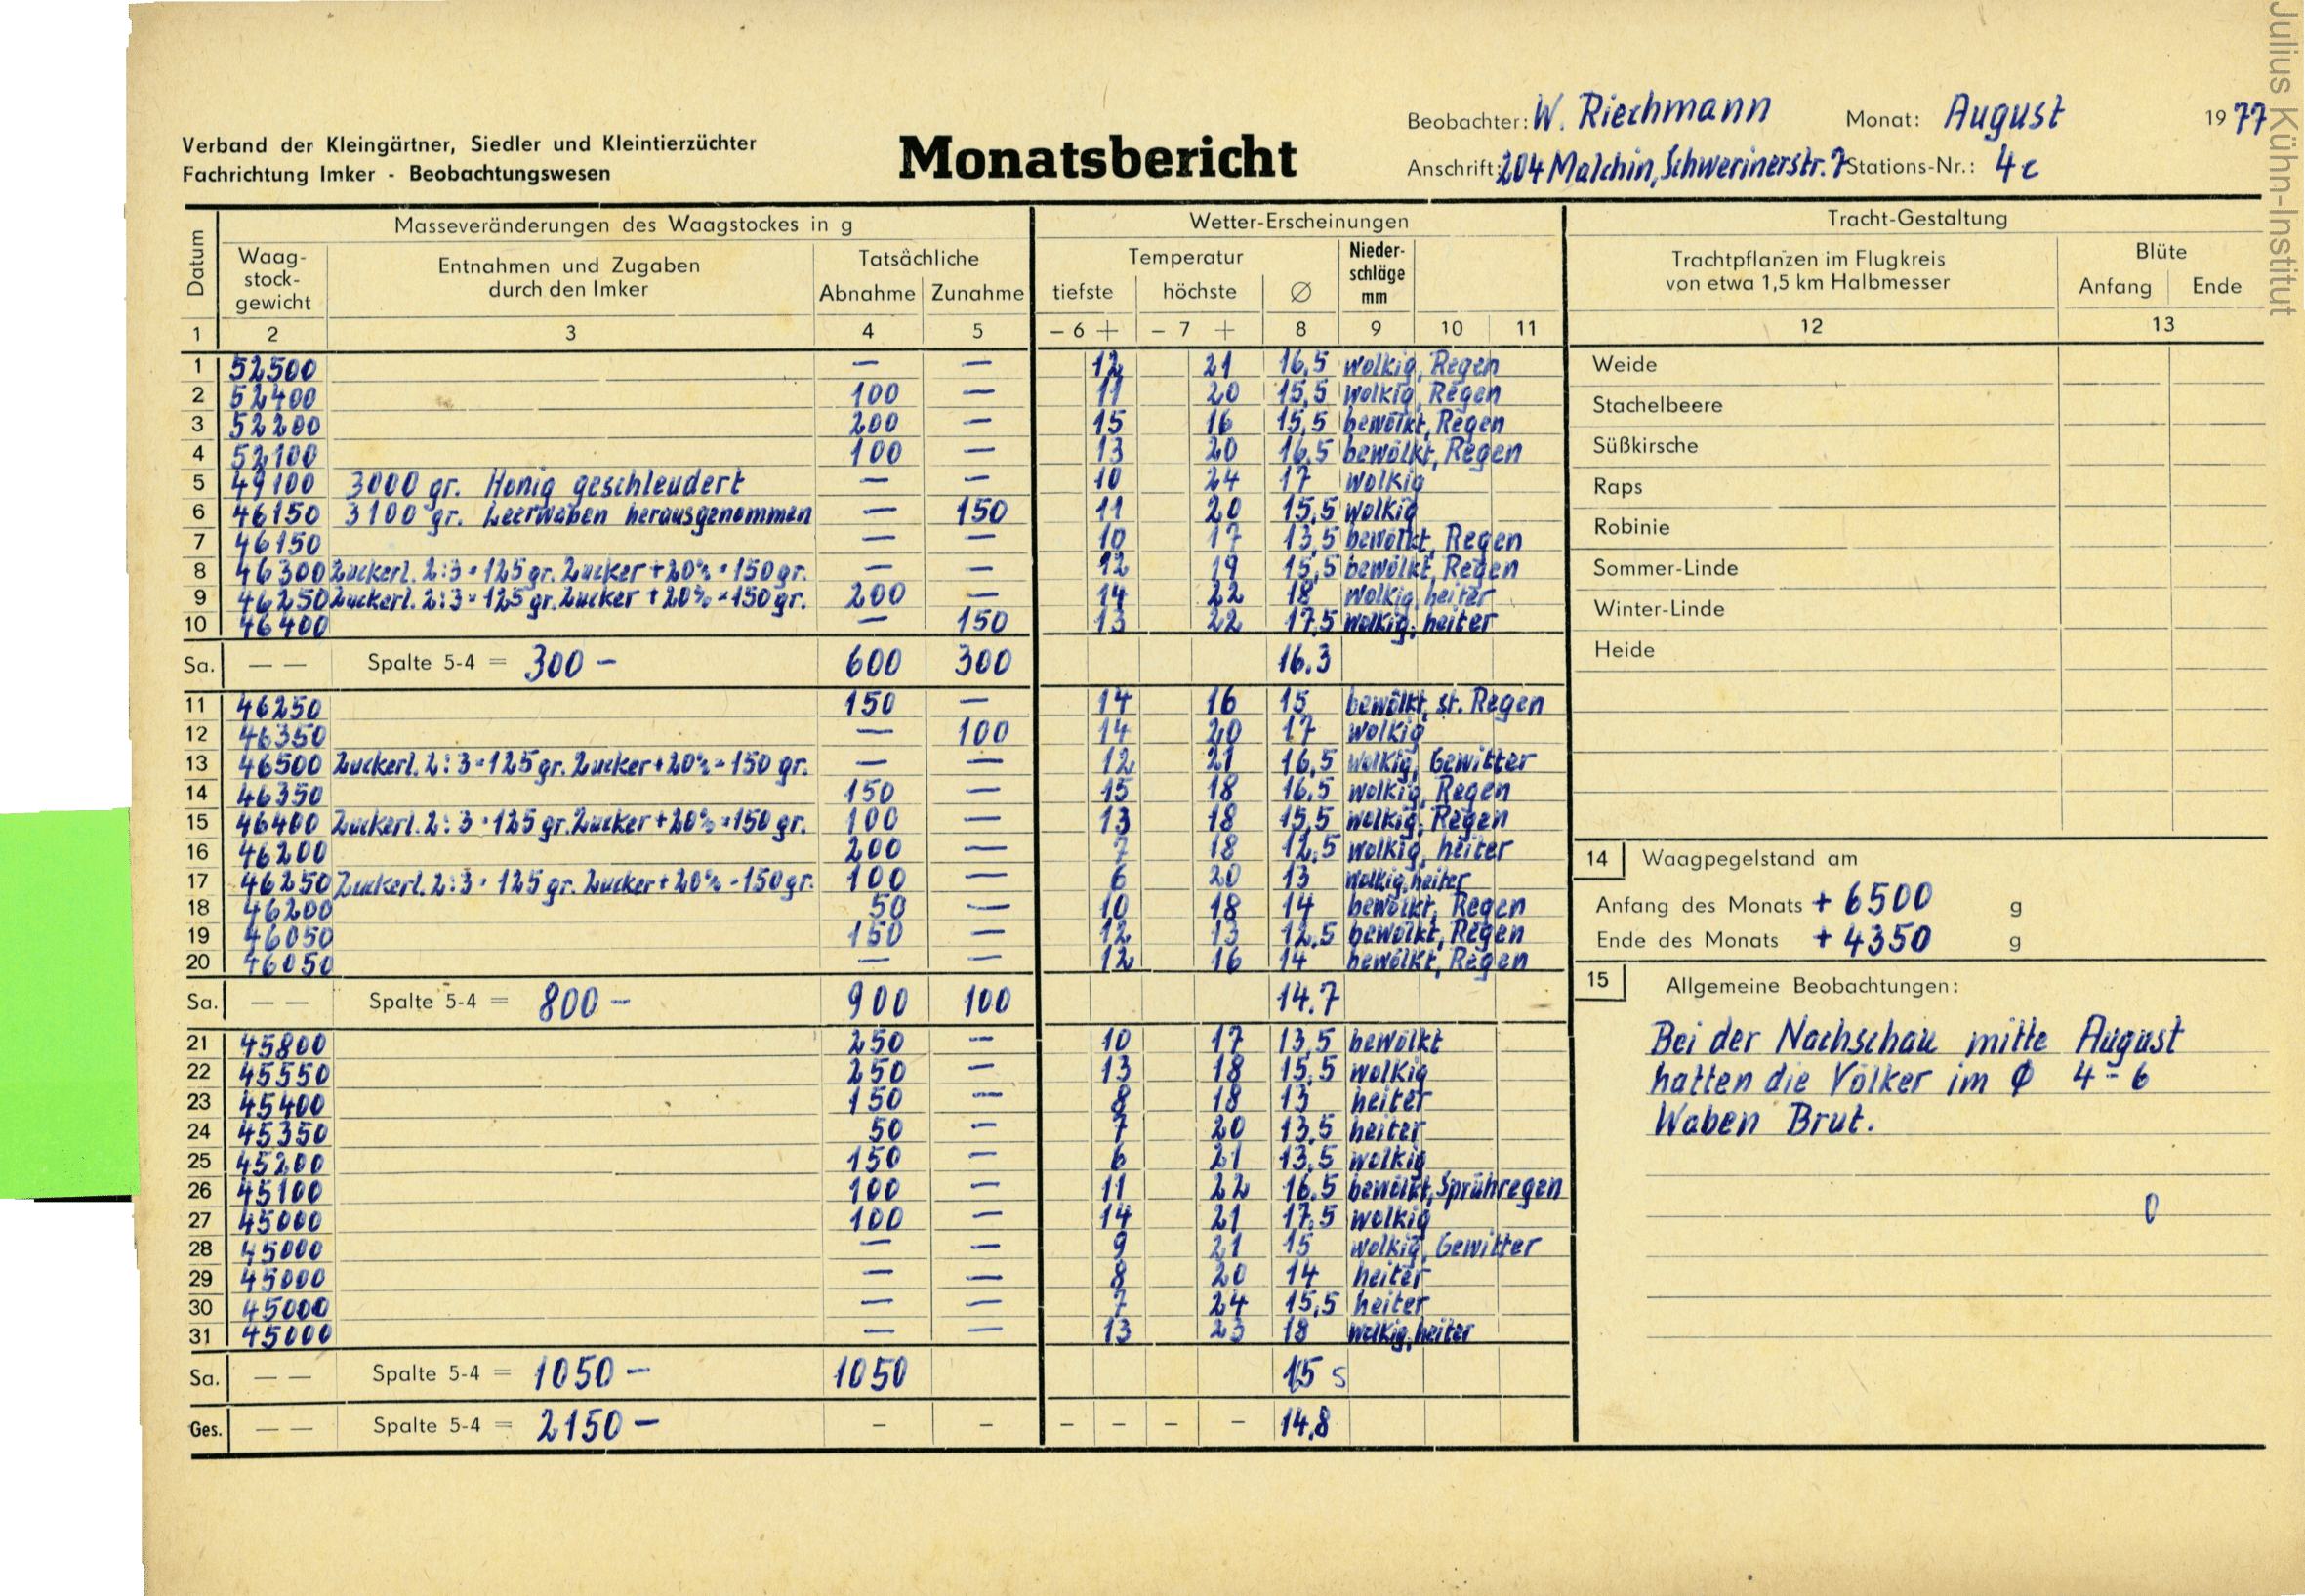 Julius Kühn-Institut
Verband der Kleingärtner, Siedler und Kleintierzüchter
Fachrichtung Imker - Beobachtungswesen
Monatsbericht
Beobachter: W. Riechmann Monat: August 1977
Anschrift: 204 Malchin, Schwerinerstr. 7 Stations-Nr.: 4c
Datum Masseveränderungen des Waagstockes in g Wetter-Erscheinungen Tracht-Gestaltung
Waag-stock-gewicht Entnahmen und Zugaben durch den Imker Tatsächliche Abnahme Zunahme Temperatur tiefste höchste Ø Nieder-schläge mm Trachtpflanzen im Flugkreis von etwa 1,5 km Halbmesser Blüte Anfang Ende
1 2 3 4 5 – 6 + – 7 + 8 9 10 11 12 13
1 52500 — — 12 21 16,5 wolkig, Regen
2 52400 100 — 11 20 15,5 wolkig, Regen
3 52200 200 — 15 16 15,5 bewölkt, Regen
4 52100 100 — 13 20 16,5 bewölkt, Regen
5 49100 3000 gr. Honig geschleudert — — 10 24 17 wolkig
6 46150 3100 gr. Leerwaben herausgenommen — 150 11 20 15,5 wolkig
7 46150 — — 10 17 13,5 bewölkt, Regen
8 46300 Zuckerl. 2:3 = 125 gr. Zucker + 20% = 150 gr. — — 12 19 15,5 bewölkt, Regen
9 46250 Zuckerl. 2:3 = 125 gr. Zucker + 20% = 150 gr. 200 — 14 22 18 wolkig, heiter
10 46400 — 150 13 22 17,5 wolkig, heiter
Sa. — — Spalte 5-4 = 300 – 600 300 16.3
11 46250 150 — 14 16 15 bewölkt, st. Regen
12 46350 — 100 14 20 17 wolkig
13 46500 Zuckerl. 2:3 = 125 gr. Zucker + 20% = 150 gr. — — 12 21 16,5 wolkig, Gewitter
14 46350 150 — 15 18 16,5 wolkig, Regen
15 46400 Zuckerl. 2:3 = 125 gr. Zucker + 20% = 150 gr. 100 — 13 18 15,5 wolkig, Regen
16 46200 200 — 7 18 12,5 wolkig, heiter
17 46250 Zuckerl. 2:3 = 125 gr. Zucker + 20% = 150 gr. 100 — 6 20 13 wolkig, heiter
18 46200 50 — 10 18 14 bewölkt, Regen
19 46050 150 — 12 13 12,5 bewölkt, Regen
20 46050 — — 12 16 14 bewölkt, Regen
Sa. — — Spalte 5-4 = 800 – 900 100 14.7
21 45800 250 — 10 17 13,5 bewölkt
22 45550 250 — 13 18 15,5 wolkig
23 45400 150 — 8 18 13 heiter
24 45350 50 — 7 20 13,5 heiter
25 45200 150 — 6 21 13,5 wolkig
26 45100 100 — 11 22 16,5 bewölkt, Sprühregen
27 45000 100 — 14 21 17,5 wolkig
28 45000 — — 9 21 15 wolkig, Gewitter
29 45000 — — 8 20 14 heiter
30 45000 — — 7 24 15,5 heiter
31 45000 — — 13 23 18 wolkig, heiter
Sa. — — Spalte 5-4 = 1050 – 1050 15 s
Ges. — — Spalte 5-4 = 2150 – – – – – – – 14,8
Weide
Stachelbeere
Süßkirsche
Raps
Robinie
Sommer-Linde
Winter-Linde
Heide
14 Waagpegelstand am
Anfang des Monats + 6500 g
Ende des Monats + 4350 g
15 Allgemeine Beobachtungen:
Bei der Nachschau mitte August
hatten die Völker im Ø 4-6
Waben Brut.
0